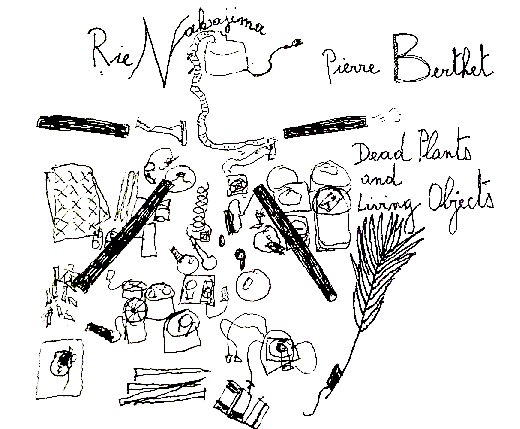 Rie Nakajima
Pierre Berthet
Dead Plants
and
Living Objects